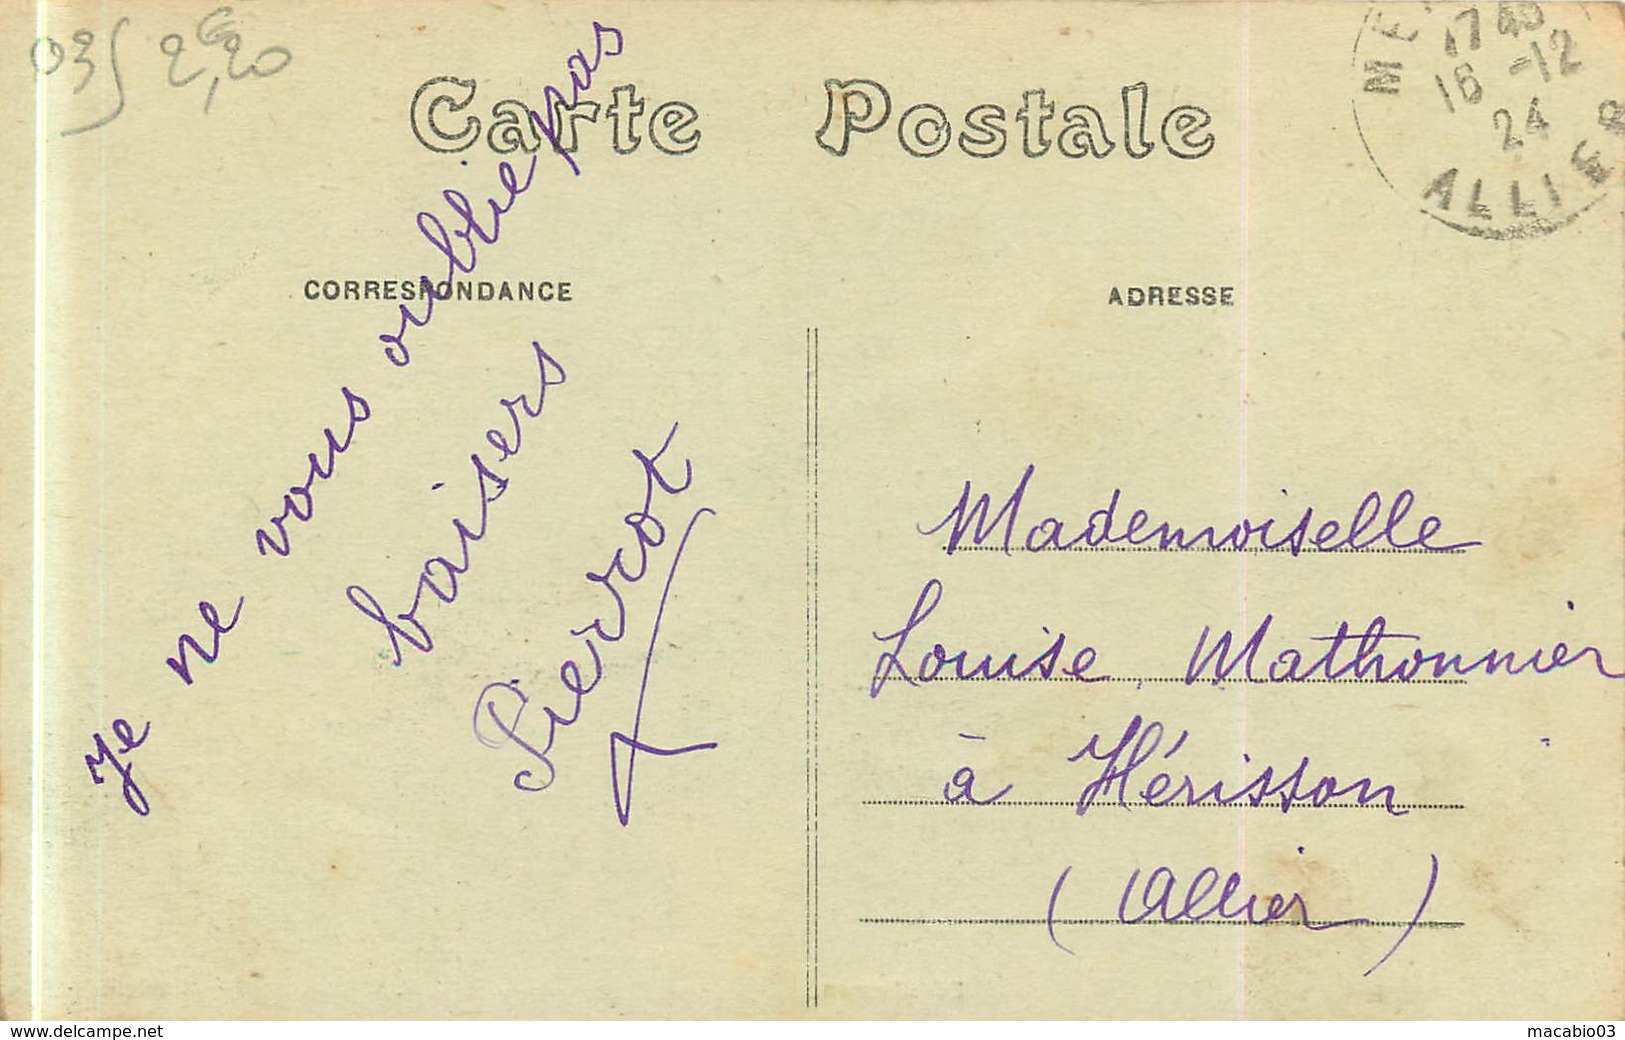 03
2€,20
Carte Postale
ME
17 40
16 -12
24
ALLIER
CORRESPONDANCE
ADRESSE
je ne vous oublie pas
baisers
Pierrot
Mademoiselle
Louise Mathonnier
à Hérisson
(Allier)
www.delcampe.net
macabio03